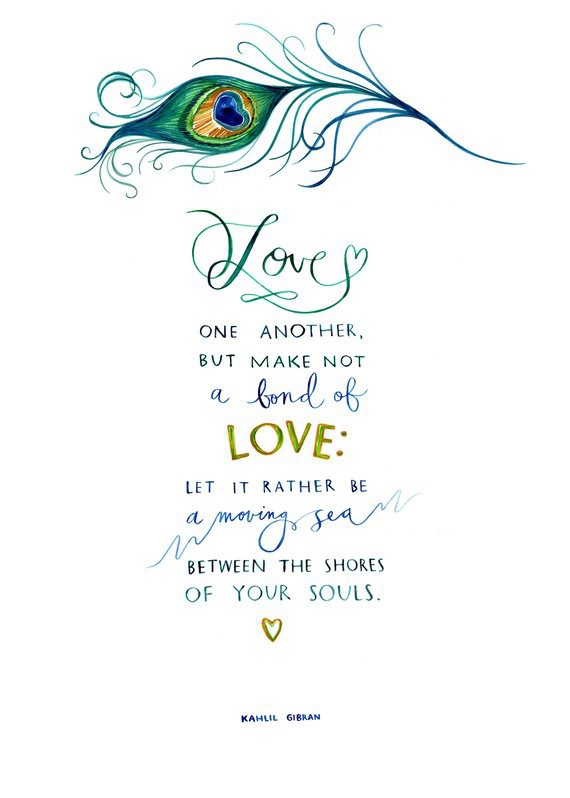 Love
ONE ANOTHER,
BUT MAKE NOT
a bond of
LOVE:
LET IT RATHER BE
a moving sea
BETWEEN THE SHORES
OF YOUR SOULS.
KAHLIL GIBRAN